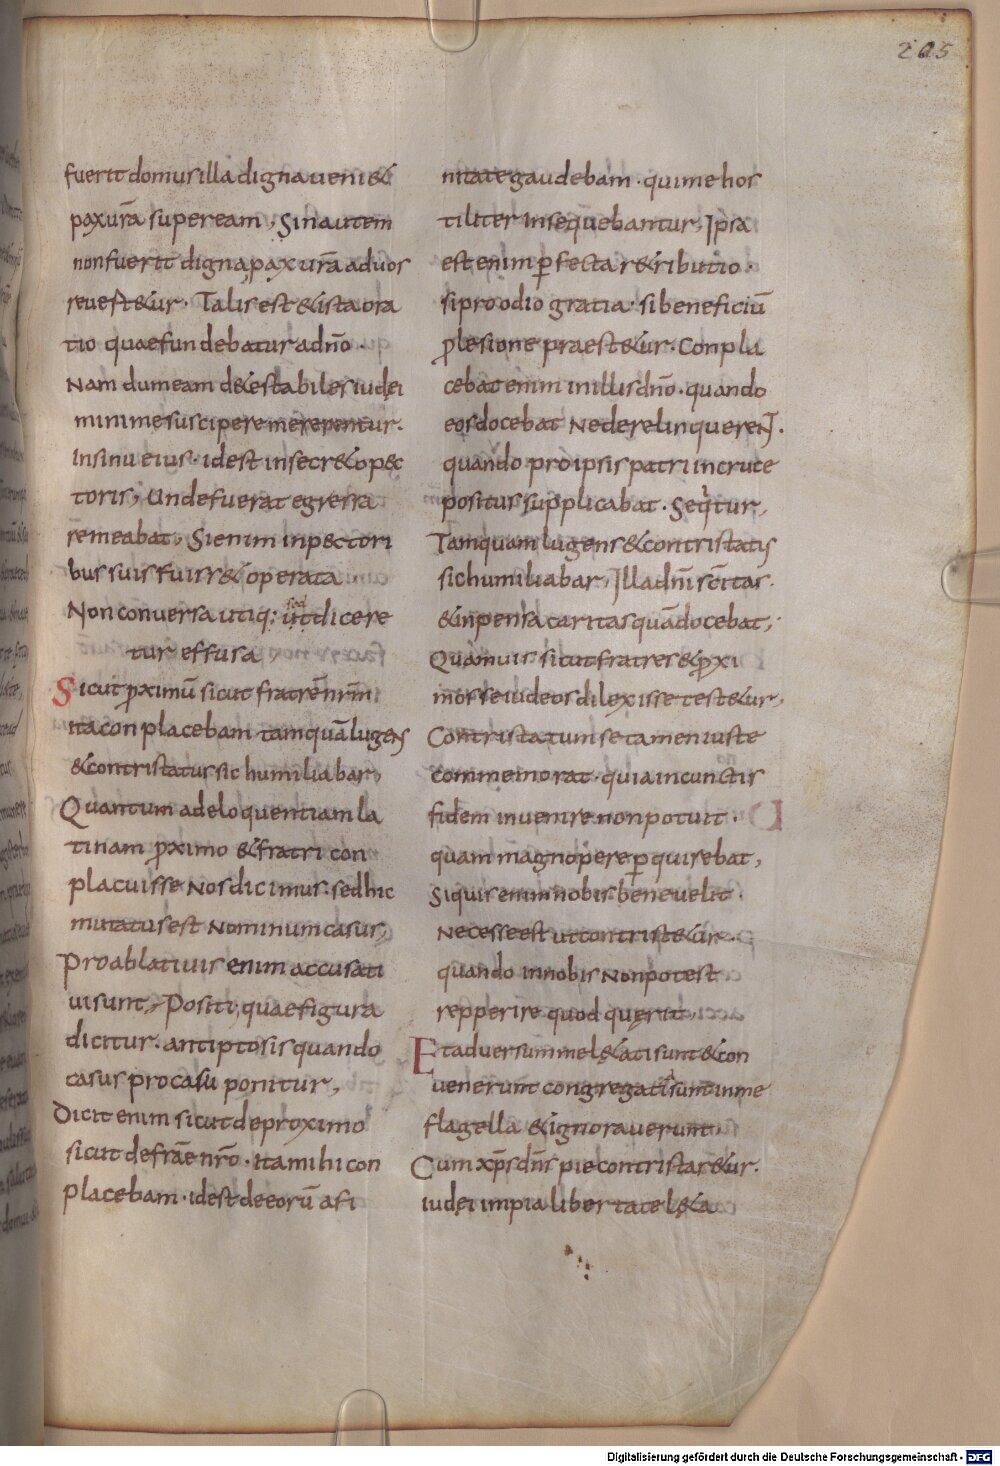 205
fuerit domus illa digna ueni&
pax urā super eam; Sin autem
non fuerit digna, pax urā ad uos
reuert&ur. Talis est & ista ora
tio quae fundebatur ad dn̄o.
Nam dum eam d&estabiles iudei
minime suscipere merepentur.
In sinu eius. id est in secr&o pec
toris; Unde fuerat egressa
remeabat; Si enim in pectori
bus suis fuiss& operata
Non conuersa utiq: ut dicere
tur effusa
Sicut proximū sicut fratrē nr̄m
ita conplacebam tamquā lugens
& contristatus sic humiliabar;
Quantum ad eloquentiam la
tinam proximo & fratri con
placuisse Nos dicimus. sed hic
mutatus est Nominum casus;
Pro ablatiuis enim accusati
ui sunt; Positi, quae figura
dicitur. antiptosis quando
casus pro casu ponitur;
Dicit enim sicut de proximo
sicut de fratre nr̄o. ita mihi con
placebam. id est de eorū afi
nitate gaudebam. qui me hos
tiliter insequebantur; Ipsa
est enim perfecta r&ributio.
si pro odio gratia. si beneficiū
p lesione praest&ur. Conpla
cebat enim in illis dn̄o. quando
eos docebat Ne derelinquerent.
quando pro ipsis patri in cruce
positus supplicabat. Sequitur;
Tamquam lugens & contristatus
sic humiliabar; Illa dn̄i scītas.
& inpensa caritas quā docebat;
Quamuis sicut fratres & proxi
mos se iudeos dilexisse test&ur;
Contristatum se tamen iuste
commemorat. quia in cunctis
fidem inuenire non potuit.
quam magnopere perquirebat;
Siquis enim nobis bene uelit.
Necesse est ut contrist&ur.
quando in nobis Non potest
repperire quod querit;
Et aduersum me l&ati sunt & con
uenerunt congregati sunt in me
flagella & ignorauerunt
Cum xps dn̄s pie contristar&ur.
iudei impia libertate l&a
Digitalisierung gefördert durch die Deutsche Forschungsgemeinschaft - DFG